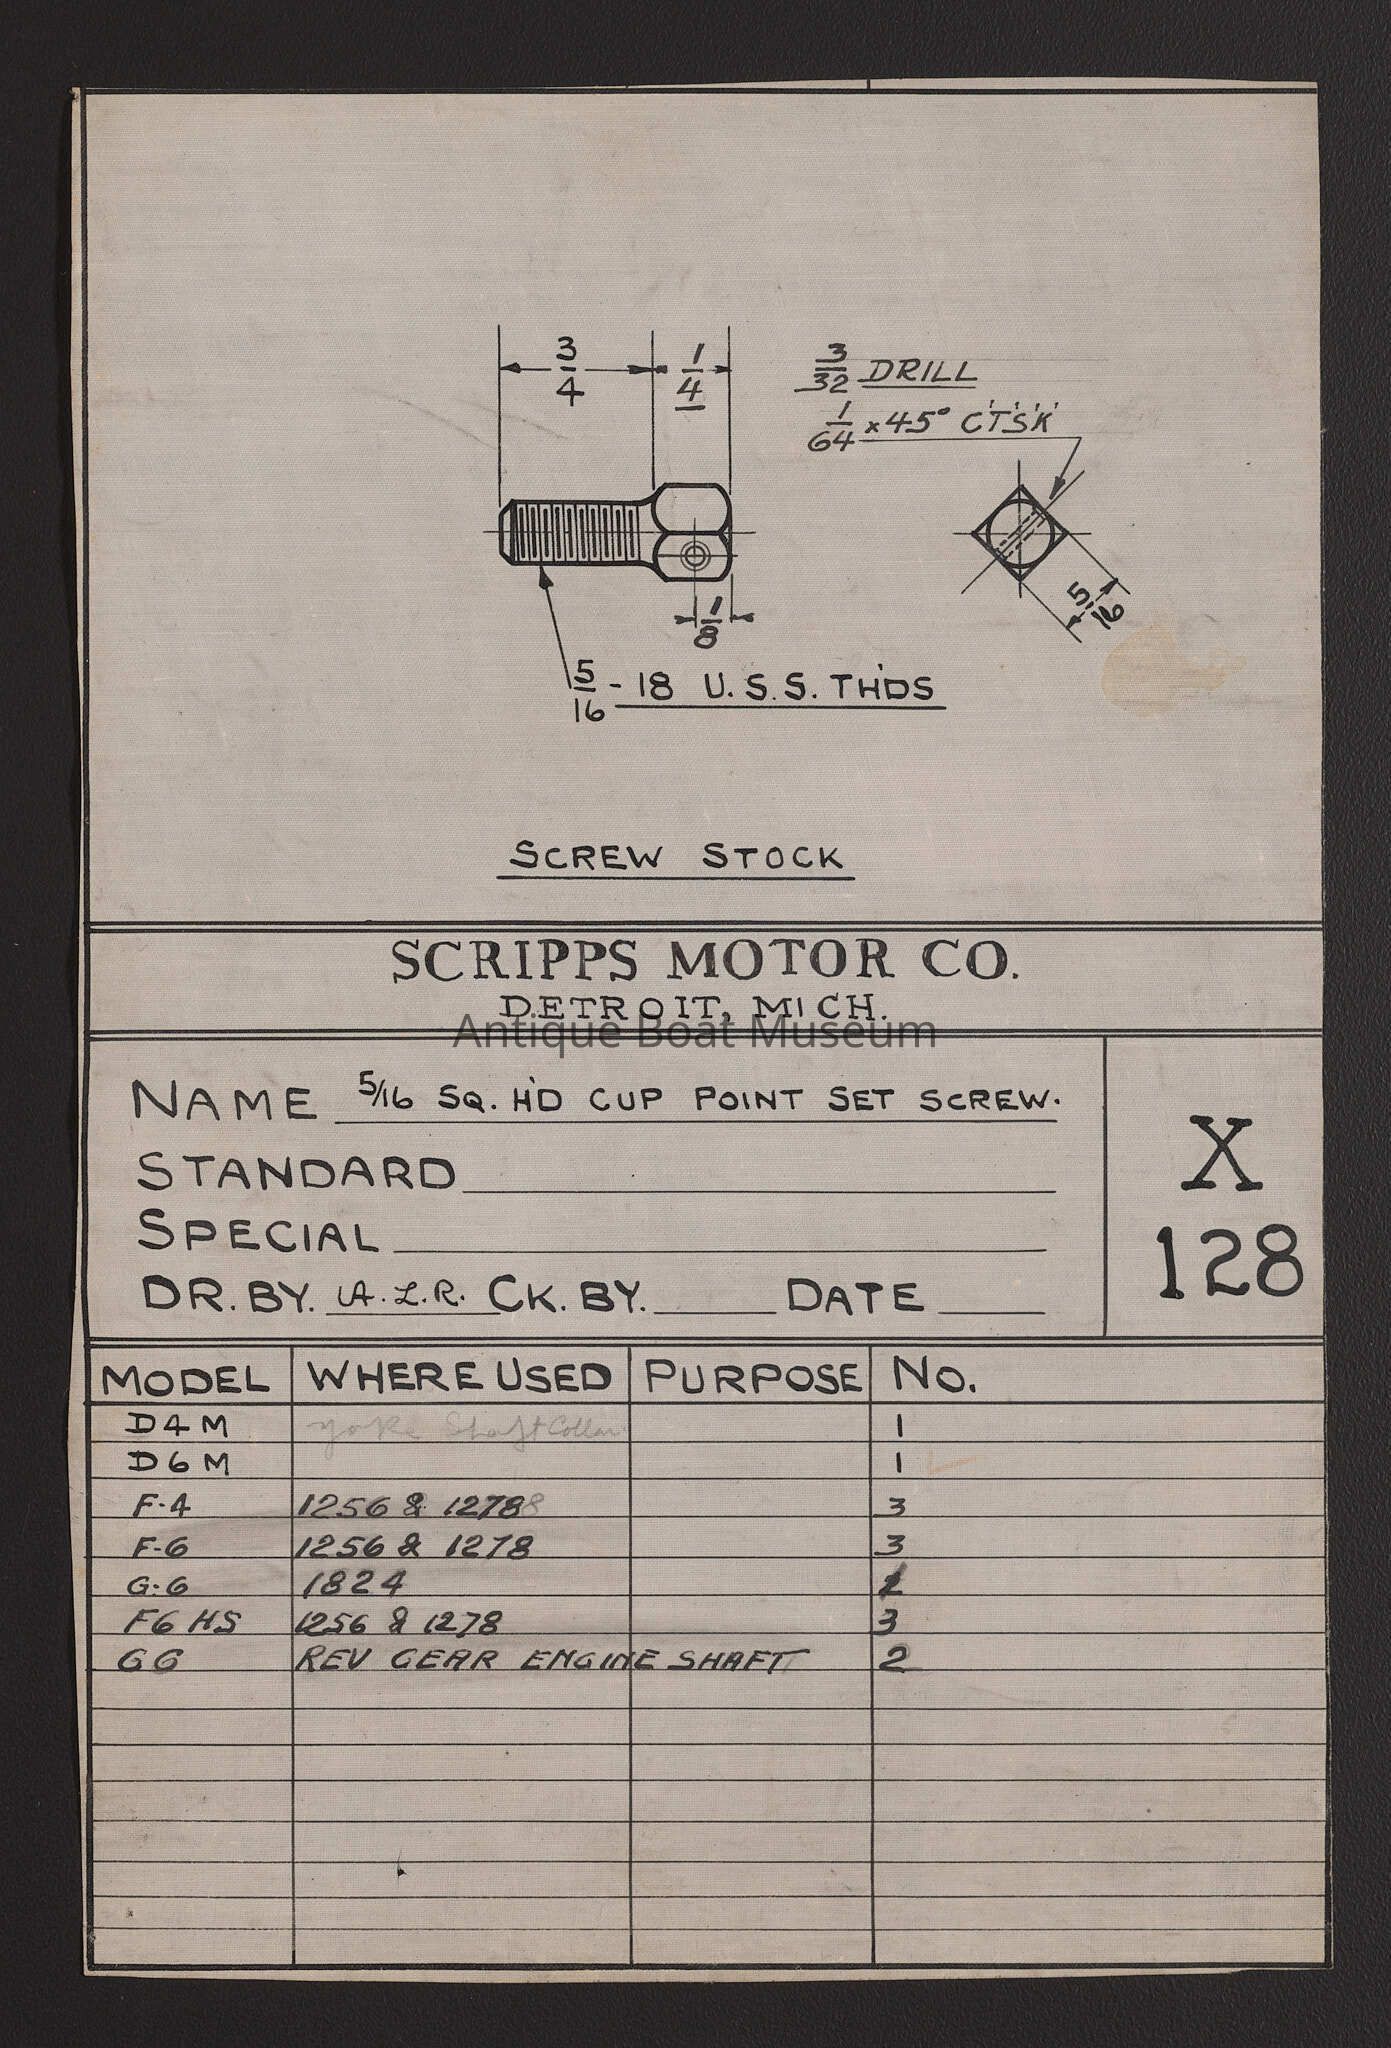 3/4
1/4
3/32 DRILL
1/64 x 45° C'T'S'K'
1/8
5/16
5/16 - 18 U.S.S. TH'DS
SCREW STOCK
SCRIPPS MOTOR CO.
DETROIT, MICH.
Antique Boat Museum
NAME 5/16 SQ. H'D CUP POINT SET SCREW.
STANDARD
SPECIAL
DR. BY. A.L.R. CK. BY. DATE
X
128
MODEL WHERE USED PURPOSE NO.
D4M Yoke Shaft Collar 1
D6M 1
F-4 1256 & 1278 3
F-6 1256 & 1278 3
G-6 1824
F6 HS 1256 & 1278 3
G6 REV GEAR ENGINE SHAFT 2